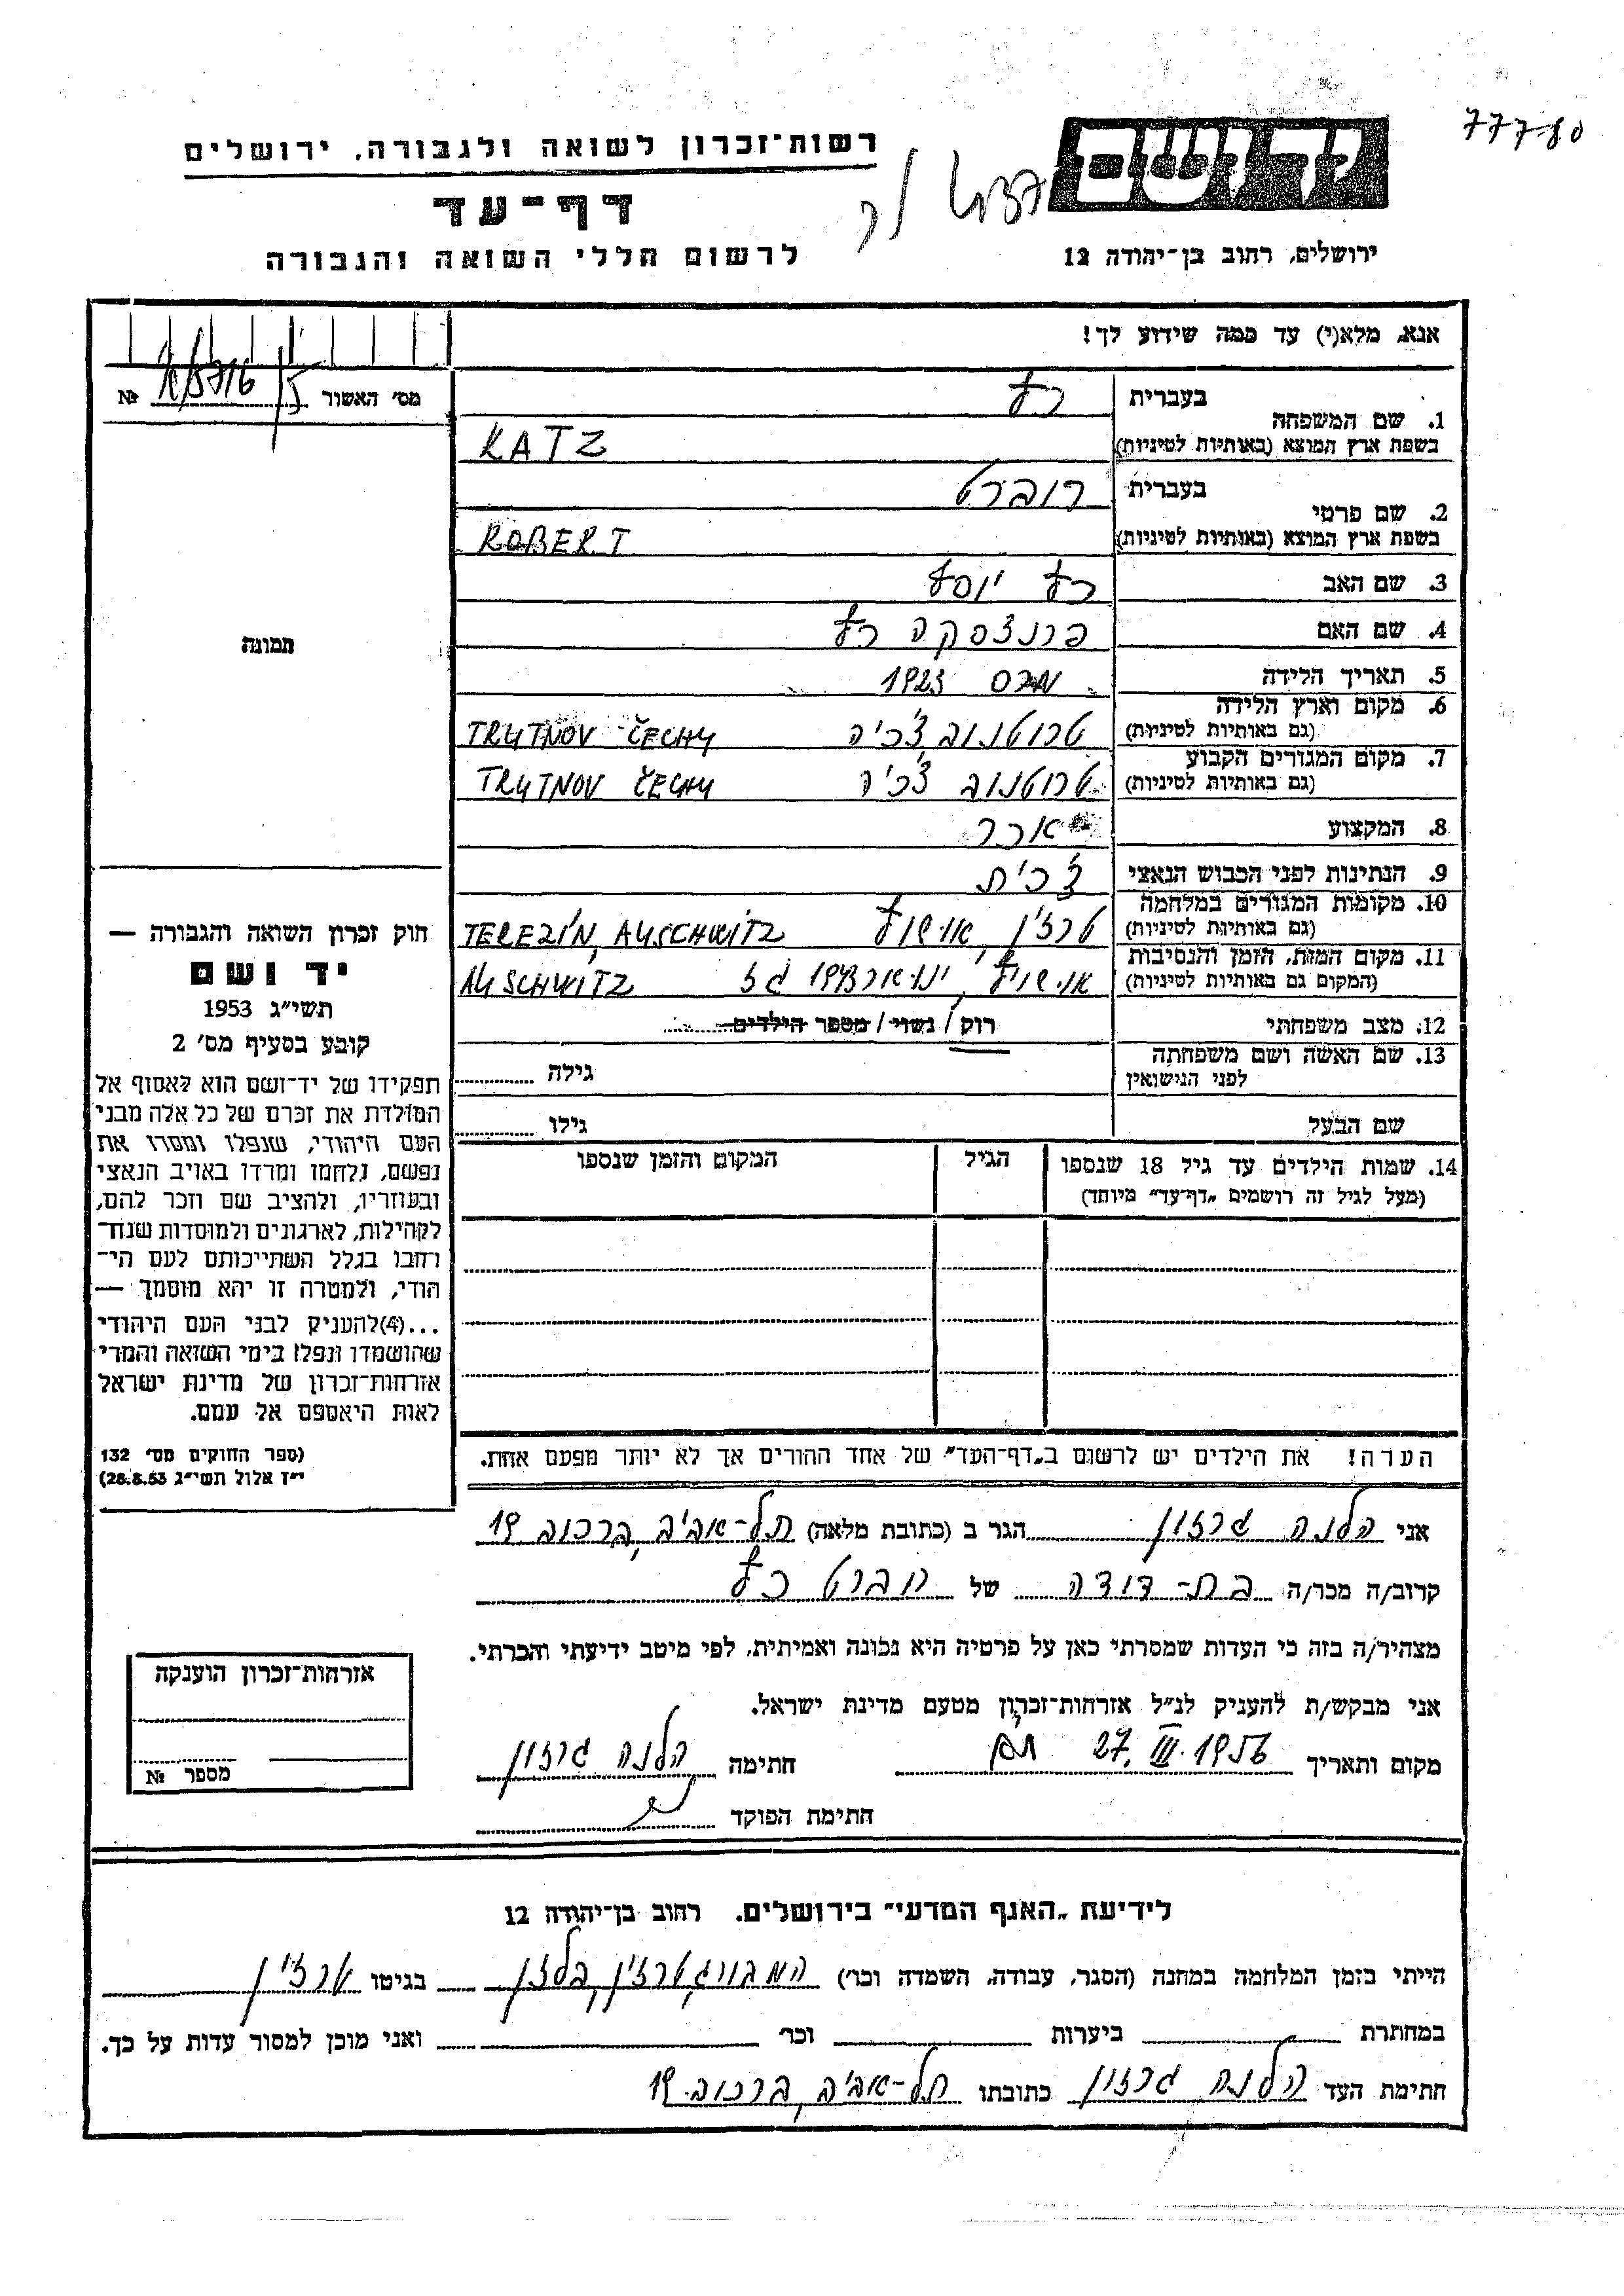 77780
רשות־זכרון לשואה ולגבורה, ירושלים
יד ושם
דף־עד
לרשום חללי השואה והגבורה
ירושלים, רחוב בן־יהודה 12
אנא, מלא(י) עד כמה שידוע לך!
מס׳ האשור №
1. שם המשפחה בעברית כץ
בשפת ארץ המוצא (באותיות לטיניות) KATZ
2. שם פרטי בעברית רוברט
בשפת ארץ המוצא (באותיות לטיניות) ROBERT
3. שם האב כץ יוסף
4. שם האם פרנצסקה כץ
תמונה
5. תאריך הלידה מרס 1923
6. מקום וארץ הלידה (גם באותיות לטיניות) טרוטנוב צ׳כיה TRUTNOV ČECHY
7. מקום המגורים הקבוע (גם באותיות לטיניות) טרוטנוב צ׳כיה TRUTNOV ČECHY
8. המקצוע
9. הנתינות לפני הכבוש הנאצי צ׳כית
10. מקומות המגורים במלחמה (גם באותיות לטיניות) טרזין, אושויץ TEREZÍN, AUSCHWITZ
11. מקום המות, הזמן והנסיבות (המקום גם באותיות לטיניות) אושויץ, ינואר 1943 גז AUSCHWITZ
12. מצב משפחתי רוק / נשוי / מספר הילדים
13. שם האשה ושם משפחתה לפני הנישואין גילה
שם הבעל גילו
14. שמות הילדים עד גיל 18 שנספו הגיל המקום והזמן שנספו
(מעל לגיל זה רושמים „דף־עד״ מיוחד)
חוק זכרון השואה והגבורה —
יד ושם
תשי״ג 1953
קובע בסעיף מס׳ 2
תפקידו של יד־ושם הוא לאסוף אל
המולדת את זכרם של כל אלה מבני
העם היהודי, שנפלו ומסרו את
נפשם, נלחמו ומרדו באויב הנאצי
ובעוזריו, ולהציב שם וזכר להם,
לקהילות, לארגונים ולמוסדות שנח־
רחבו בגלל השתייכותם לעם הי־
הודי, ולמטרה זו יהא מוסמך —
...(4)להעניק לבני העם היהודי
שהושמדו ונפלו בימי השואה והמרי
אזרחות־זכרון של מדינת ישראל
לאות היאספם אל עמם.
(ספר החוקים מס׳ 132
י״ז אלול תשי״ג 28.8.53)
הערה! את הילדים יש לרשום ב„דף־העד״ של אחד ההורים אך לא יותר מפעם אחת.
אני הלנה גרזון הגר ב (כתובת מלאה) תל-אביב, ברכוב 19
קרוב/ה מכר/ה בת-דודה של רוברט כץ
מצהיר/ה בזה כי העדות שמסרתי כאן על פרטיה היא נכונה ואמיתית, לפי מיטב ידיעתי והכרתי.
אני מבקש/ת להעניק לנ״ל אזרחות־זכרון מטעם מדינת ישראל.
מקום ותאריך 27. III. 1956 חתימה הלנה גרזון
חתימת הפוקד
אזרחות־זכרון הוענקה
מספר №
לידיעת „האגף המדעי״ בירושלים, רחוב בן־יהודה 12
הייתי בזמן המלחמה במחנה (הסגר, עבודה, השמדה וכו׳) המבורג, טרזין, בלזן בגיטו טרזין
במחתרת ביערות וכו׳ ואני מוכן למסור עדות על כך.
חתימת העד הלנה גרזון כתובתו תל-אביב, ברכוב 19